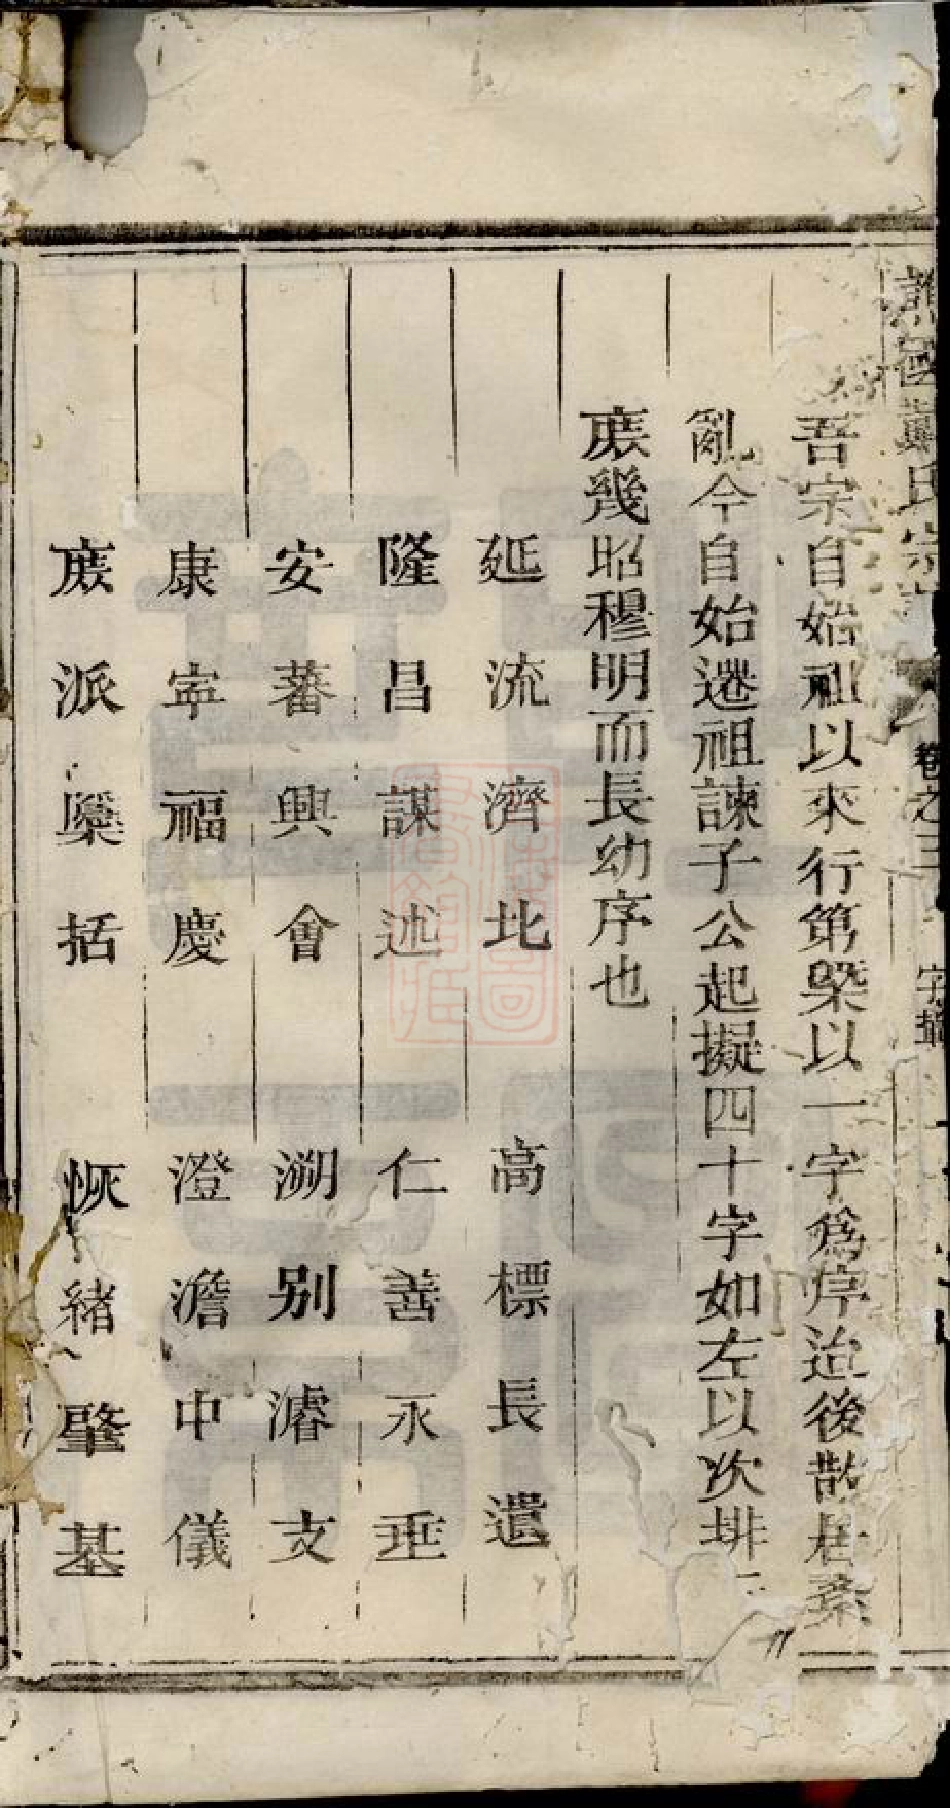 譙國戴氏宗
卷之三
字輩
一
吾宗自始祖以來行第槩以一字爲序迨後散居紊
亂今自始遷祖諫子公起擬四十字如左以次排
庻幾昭穆明而長幼序也
延流濟北 高標長遺
隆昌謀述 仁善永垂
安蕃興會 溯别濬支
康寧福慶 澄澹中儀
庻派櫽括 恢緒肇基